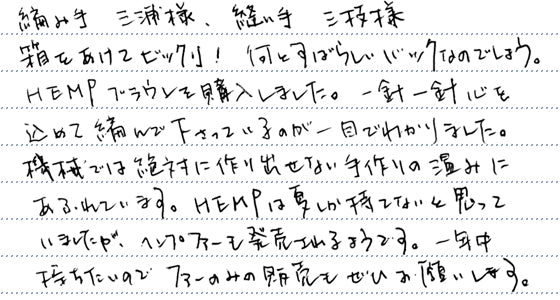 編み手 三浦様、縫い手 三枝様
箱をあけてビックリ！ 何とすばらしいバックなのでしょう。
HEMPブラウンを購入しました。一針一針心を
込めて編んで下さっているのが一目でわかりました。
機械では絶対に作り出せない手作りの温みに
あふれています。HEMPは夏しか持てないと思って
いましたが、ヘンプファーも発売されるようです。一年中
持ちたいので ファーのみの販売も ぜひお願いします。